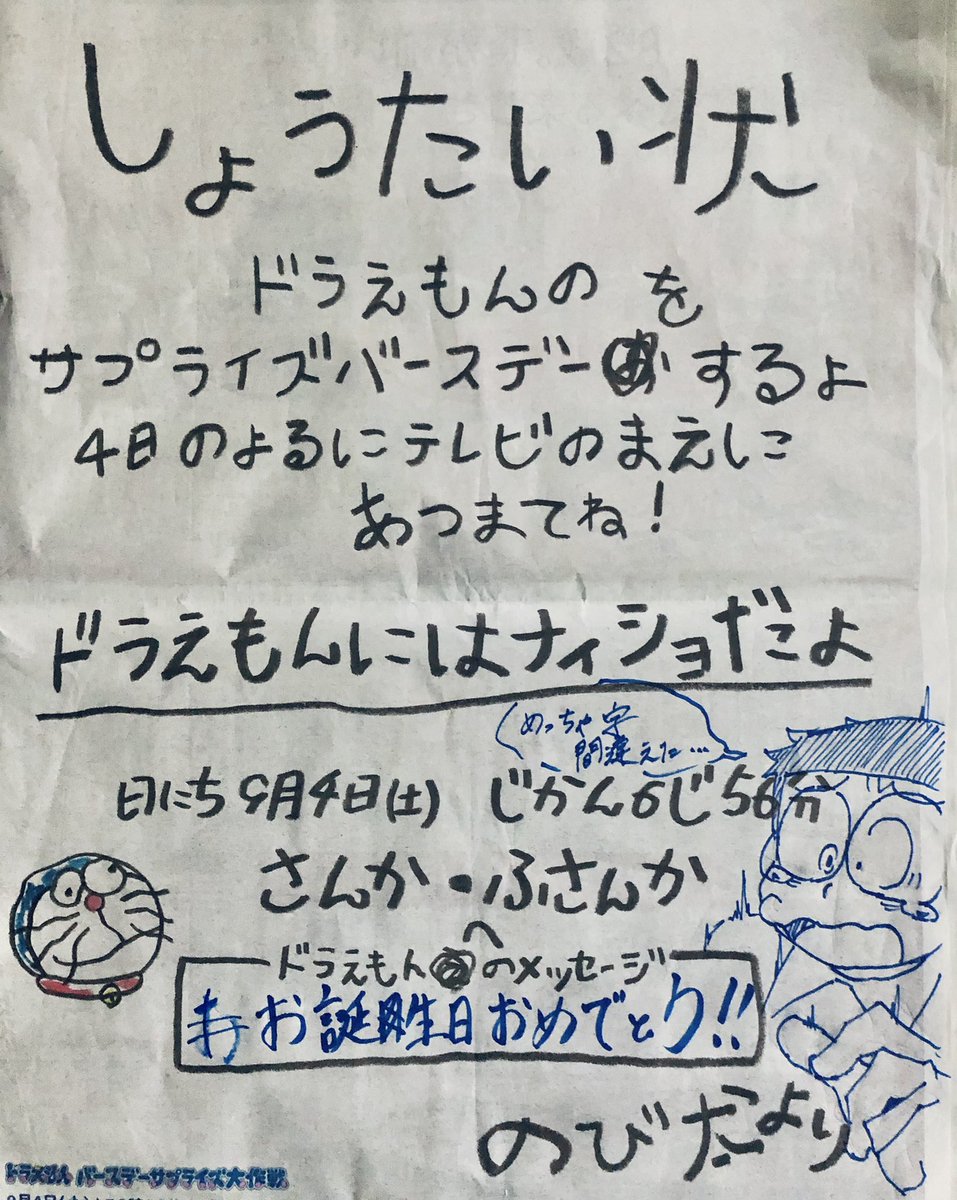 しょうたい状
ドラえもんの を
サプライズバースデー するよ
4日のよるにテレビのまえに
あつまてね!
ドラえもんにはナイショだよ
めっちゃ字
間違えた…
日にち9月4日(土) じかん6じ56分
さんか・ふさんか
ドラえもんへのメッセージ
お誕生日おめでとう!!
のびたより
ドラえもん バースデーサプライズ大作戦